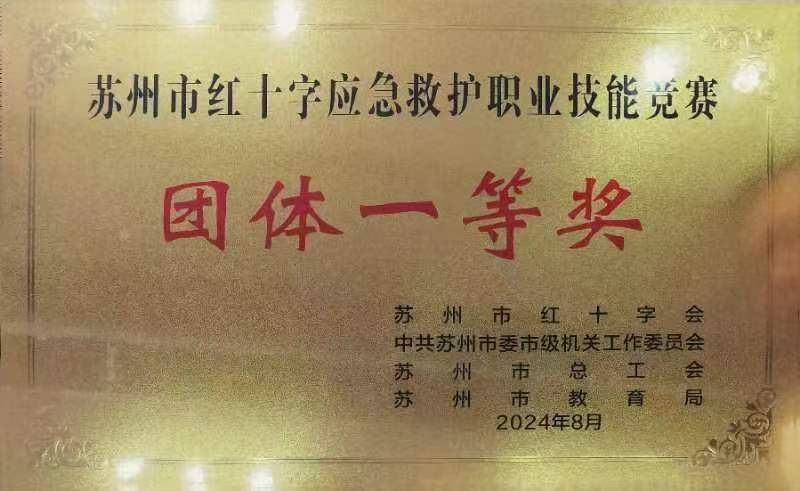 苏州市红十字应急救护职业技能竞赛
团体一等奖
苏州市红十字会
中共苏州市委市级机关工作委员会
苏州市总工会
苏州市教育局
2024年8月